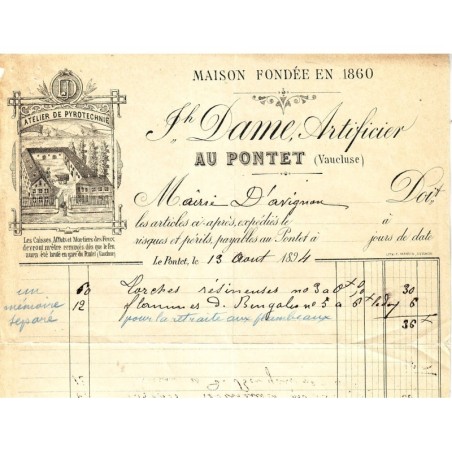 MAISON FONDÉE EN 1860
ATELIER DE PYROTECHNIE
Jh Dame, Artificier
AU PONTET (Vaucluse)
Mairie D'avignon Doit
les articles ci-après, expédiés le
risques et périls, payables au Pontet à jours de date
Les Caisses, Affuts et Mortiers des Feux
devront m'être renvoyés dès que le feu
aura été brûlé en gare du Pontet (Vaucluse)
Le Pontet, le 13 Aout 1894
60 Torches résineuses no 3 a 0f50 30
12 flammes d. Bengales no 3 a 6f 6
pour la retraite aux flambeaux
un
mémoire
séparé
36f